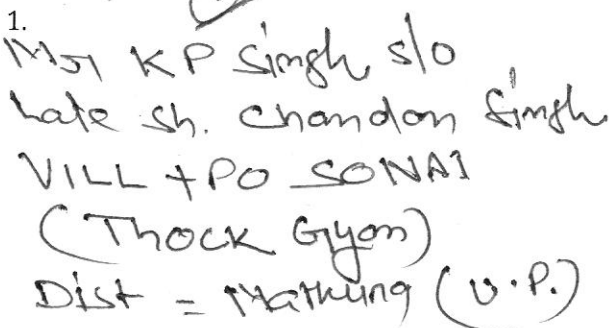 1.
Maj KP Singh s/o
Late Sh. Chandan Singh
VILL + PO SONAI
(Thock Gyan)
Dist = Mathura (U.P.)